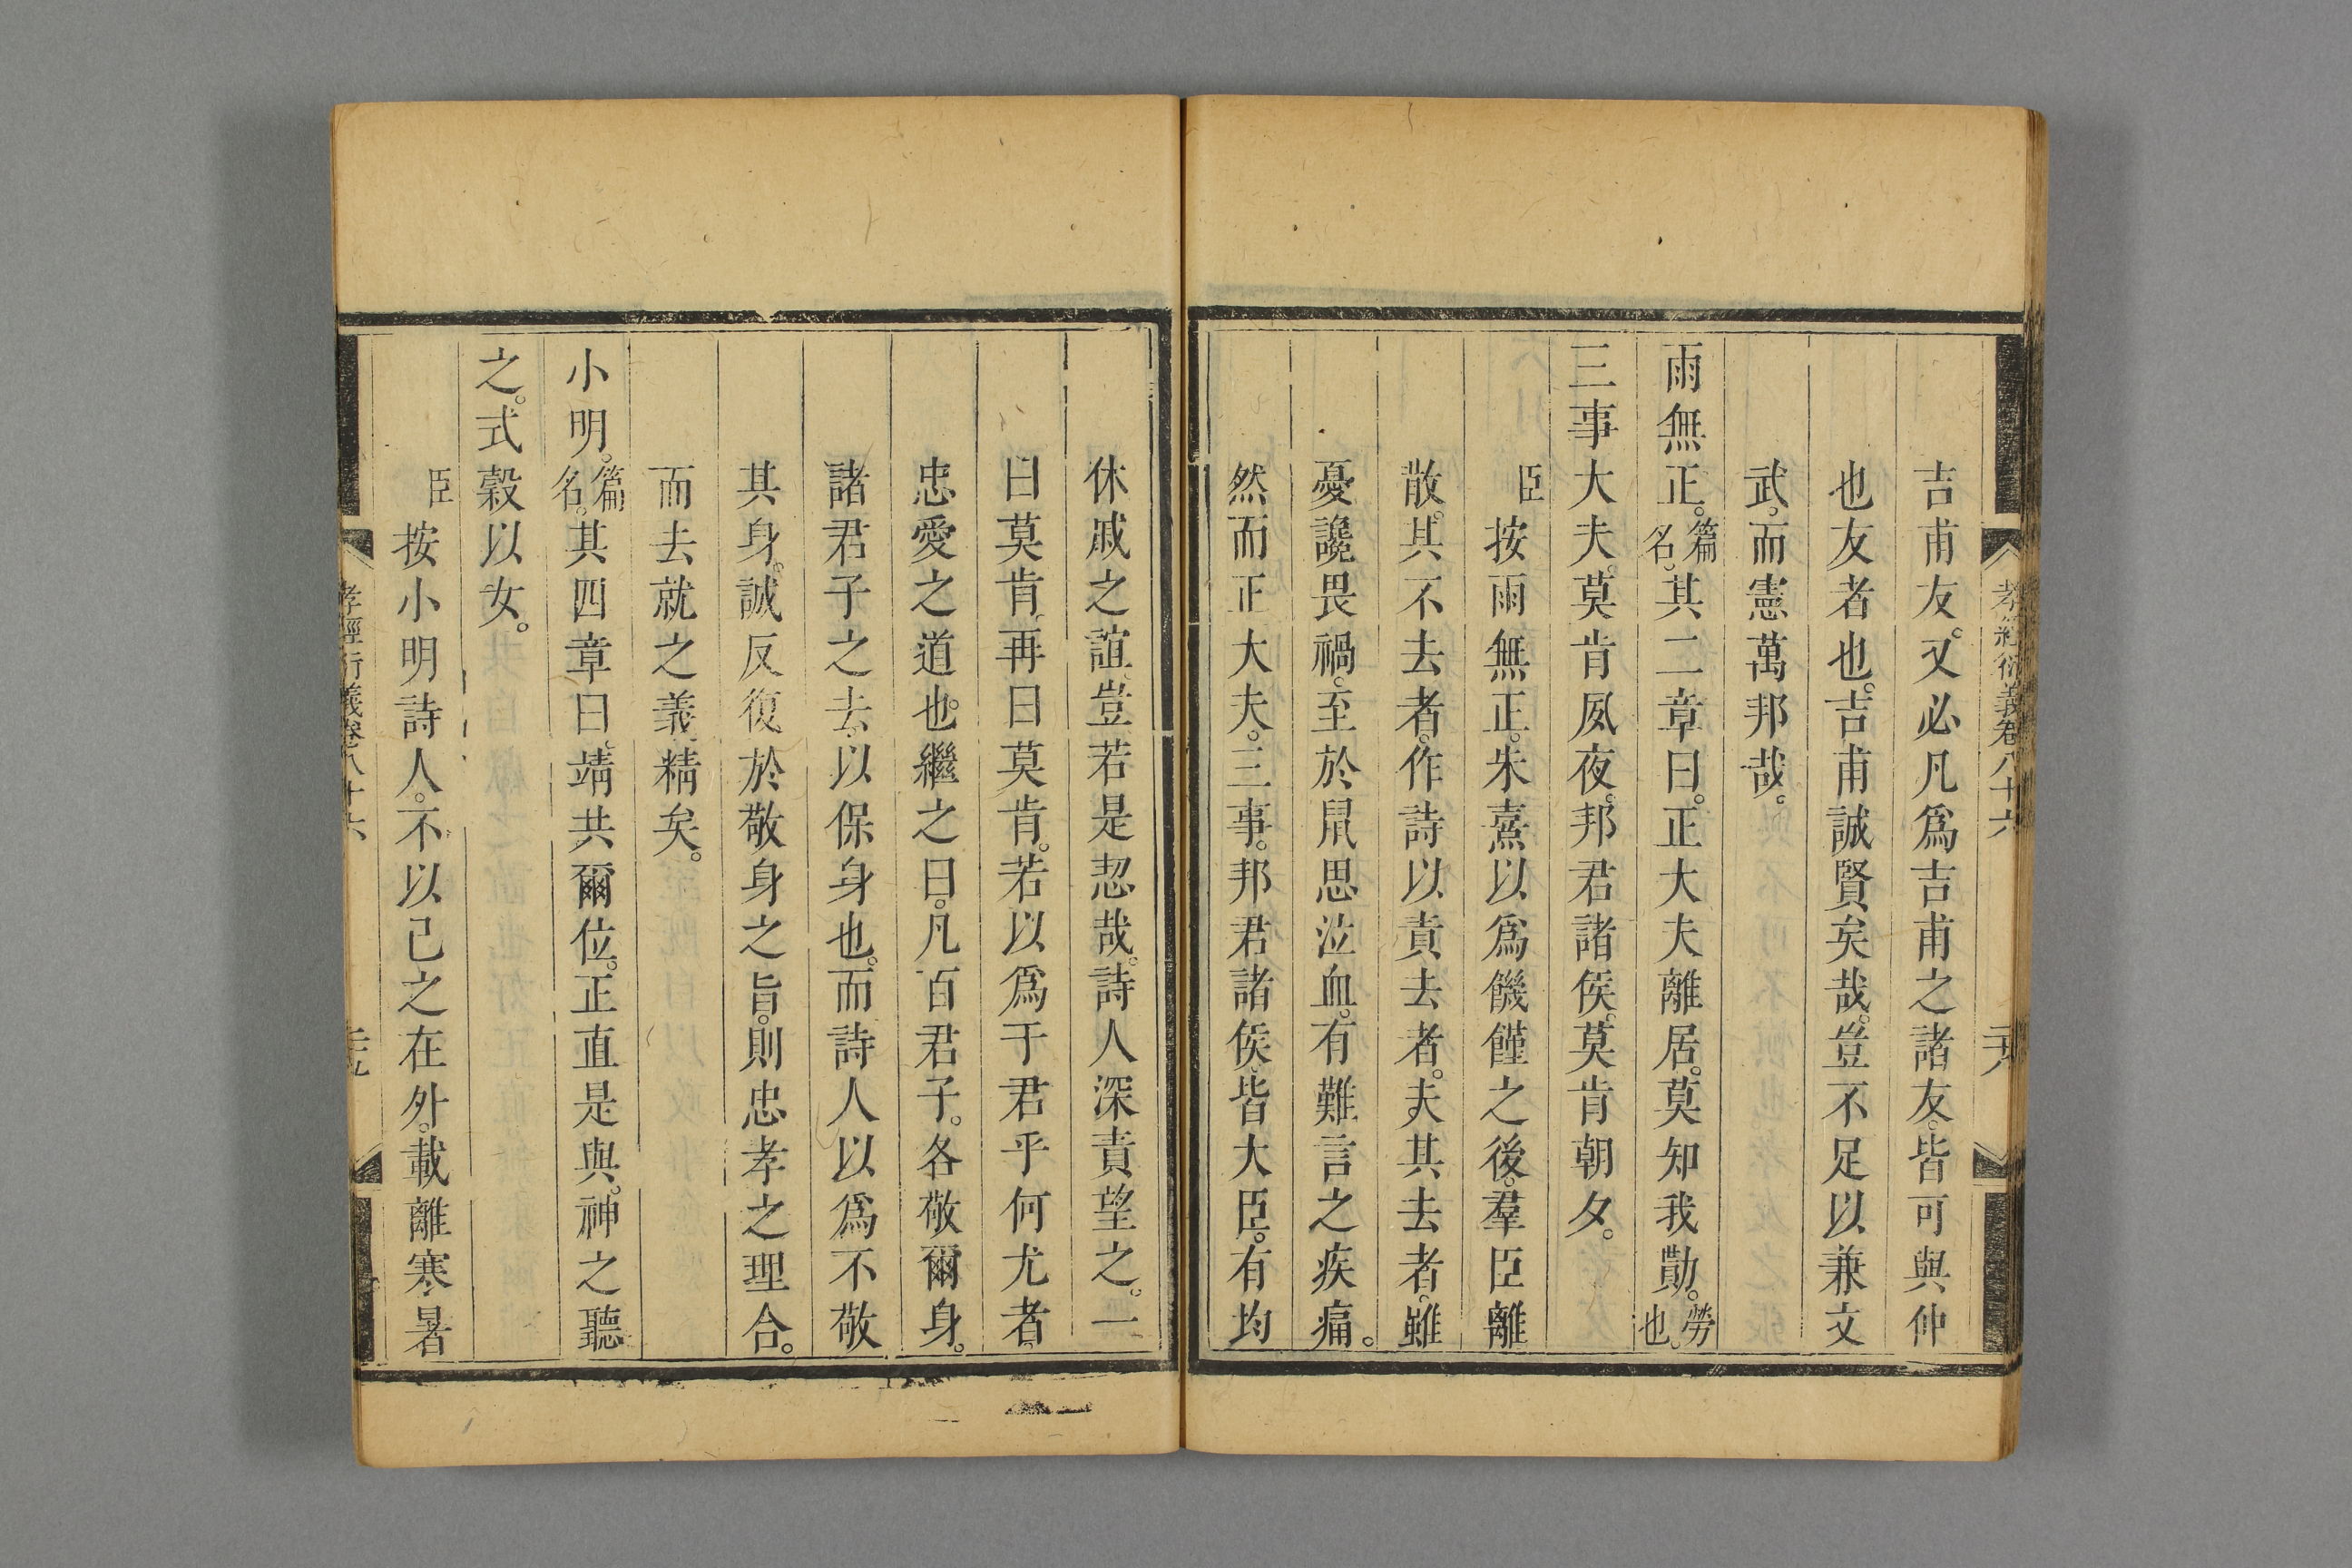 孝經衍義卷八十六
吉甫友。又必凡爲吉甫之諸友。皆可與仲
也友者也。吉甫誠賢矣哉。豈不足以兼文
武。而憲萬邦哉。
雨無正。篇名。其二章曰。正大夫離居。莫知我勩。勞也。
三事大夫。莫肯夙夜。邦君諸侯。莫肯朝夕。
臣按雨無正。朱熹以爲饑饉之後。羣臣離
散。其不去者。作詩以責去者。夫其去者。雖
憂讒畏禍。至於鼠思泣血。有難言之疾痛。
然而正大夫。三事。邦君諸侯。皆大臣。有均
休戚之誼。豈若是恝哉。詩人深責望之。一
曰莫肯。再曰莫肯。若以爲于君乎何尤者。
忠愛之道也。繼之曰。凡百君子。各敬爾身。
諸君子之去。以保身也。而詩人以爲不敬
其身。誠反復於敬身之旨。則忠孝之理合。
而去就之義精矣。
小明。篇名。其四章曰。靖共爾位。正直是與。神之聽
之。式穀以女。
臣按小明詩人。不以己之在外。載離寒暑
孝經衍義卷八十六